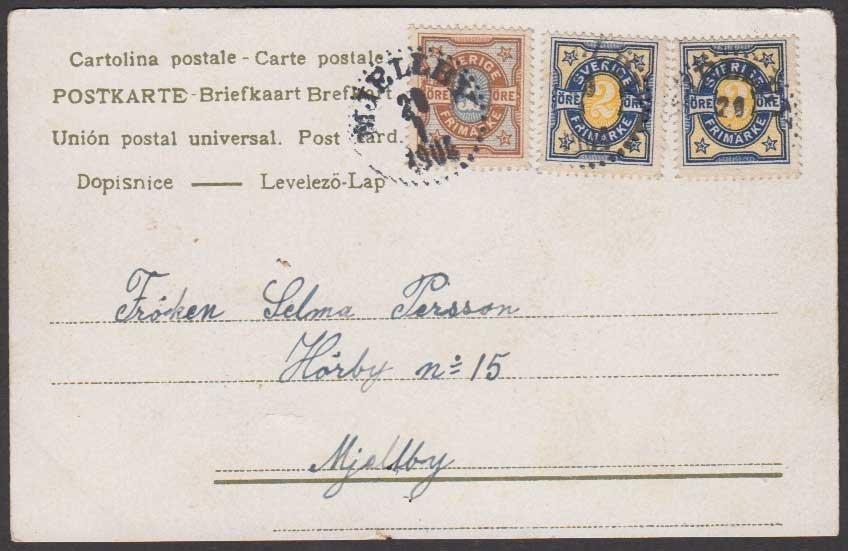 Cartolina postale - Carte postale
POSTKARTE - Briefkaart Brefkort
Unión postal universal. Post Card.
Dopisnice — Levelező-Lap
SVERIGE
ÖRE ÖRE
FRIMÄRKE
SVERIGE
ÖRE 2 ÖRE
FRIMÄRKE
SVERIGE
ÖRE 2 ÖRE
FRIMÄRKE
MJELLBY
20
1
29
Fröken Selma Persson
Hörby no 15
Mjellby